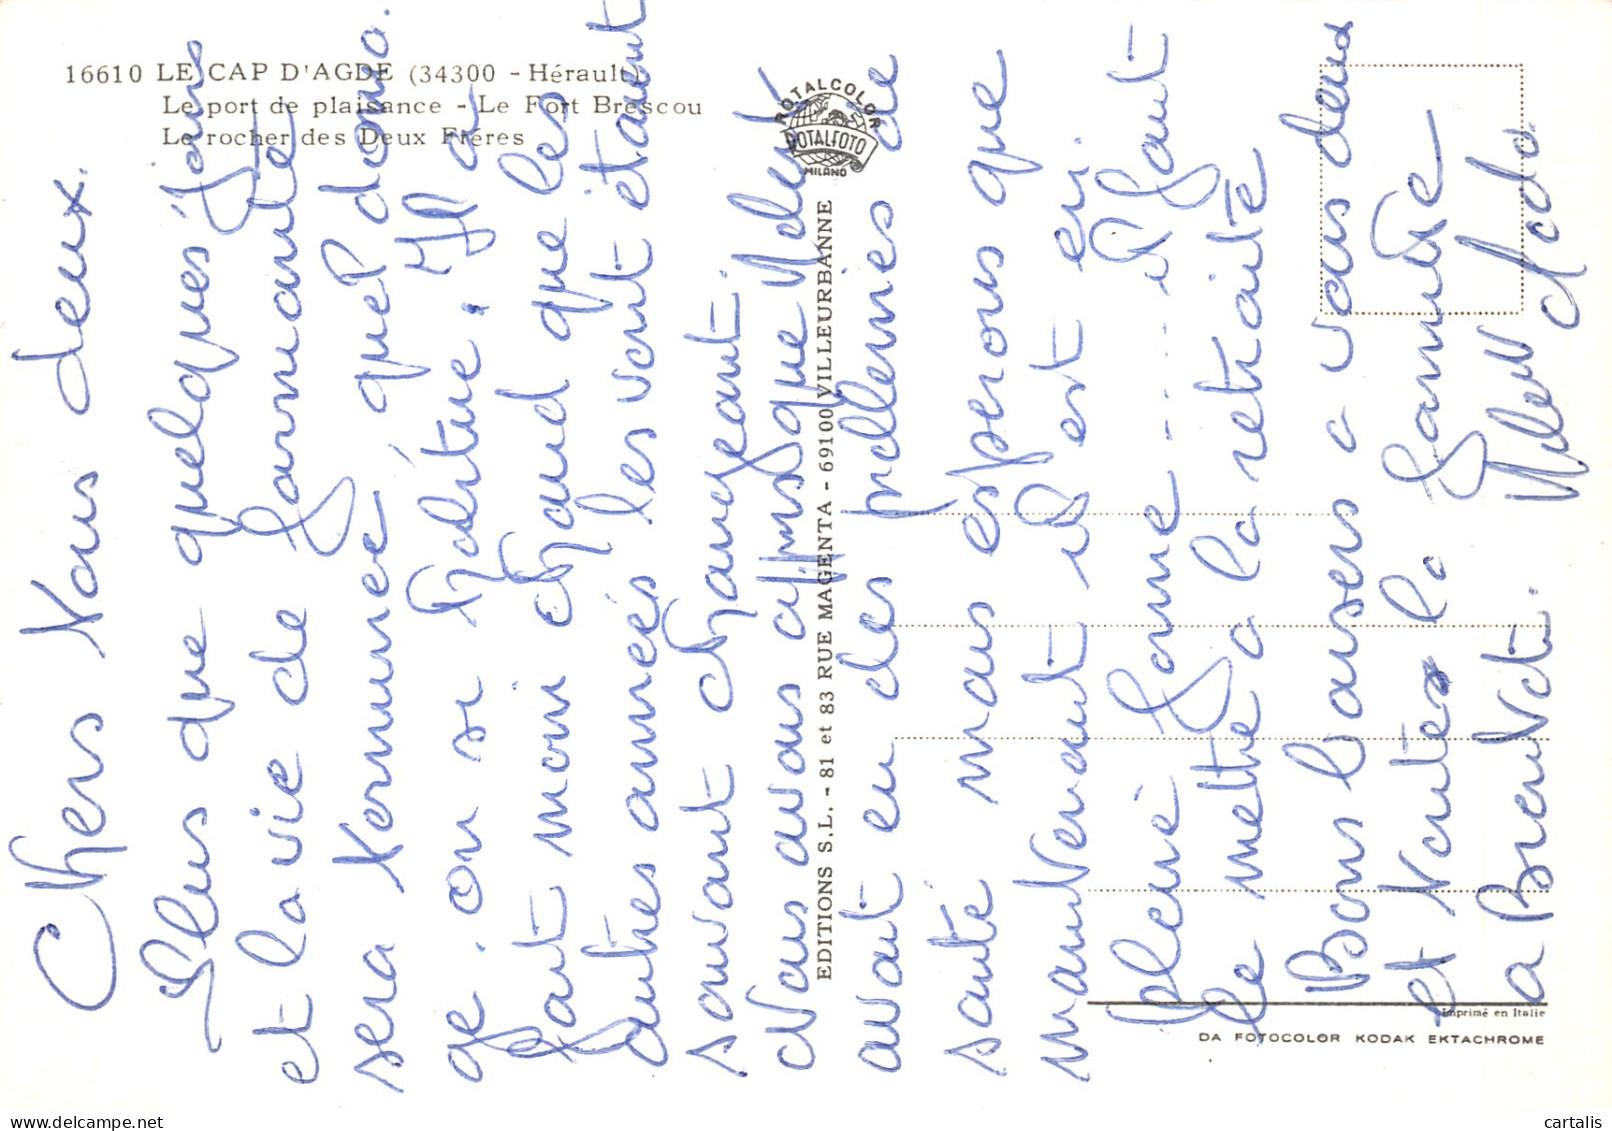 16610 LE CAP D'AGDE (34300 - Hérault)
Le port de plaisance - Le Fort Brescou
Le rocher des Deux Fréres
ROTALCOLOR
ROTALFOTO
MILANO
EDITIONS S.L. - 81 et 83 RUE MAGENTA - 69100 VILLEURBANNE
Imprimé en Italie
DA FOTOCOLOR KODAK EKTACHROME
Chers Vous deux.
Plus que quelques jours
et la vie de farniente
sera terminée, quel doma
ge. on si habitue. Il a
fait moin chaud que les
autres années les vent étaient
souvant changeant.
Nous avons appris que
avait eu des problèmes de
santé mais esperons que
maintenant il est en
pleine forme .... il faut
le mettre a la retraite
Bons baisers a vous deux
et toute la famille
a Bientot.
cartalis